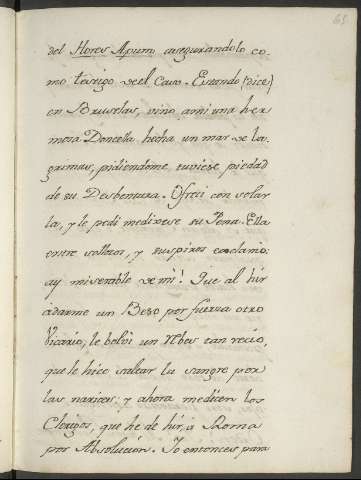 65
del Flores Apum asegurandolo co-
mo testigo de el Caso. Estando (dice)
en Bruselas, vino a mi una her
mosa Doncella hecha un mar de la-
grimas, pidiendome tuviese piedad
de su Desbentura. Ofreci consolar
la, y le pedi me dixese su Pena. Ella
entre sollozos, y suspiros exclamo:
ay miserable de mi! Que al hir
à darme un Beso por fuerza otro
Vicario, le bolvi un Rebes tan recio,
que le hice saltar la sangre por
las narices; y ahora me dicen los
Clerigos, que he de hir, a Roma
por Absolucion. Io entonces para